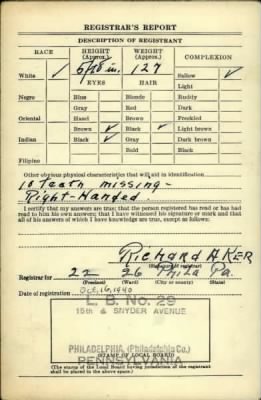 REGISTRAR'S REPORT
DESCRIPTION OF REGISTRANT
RACE HEIGHT (Approx.) WEIGHT (Approx.) COMPLEXION
White ✓ 127 Sallow ✓
EYES HAIR Light
Negro Blue Blonde Ruddy
Gray Red Dark
Oriental Hazel Brown Freckled
Brown ✓ Black ✓ Light brown
Indian Black Gray Dark brown
Bald Black
Filipino
Other obvious physical characteristics that will aid in identification
10 Teeth missing-
Right-Handed
I certify that my answers are true; that the person registered has read or has had
read to him his own answers; that I have witnessed his signature or mark and that
all of his answers of which I have knowledge are true, except as follows:
Richard A KER
Registrar for 22 26 Phila Pa.
(Precinct) (Ward) (City or county) (State)
Date of registration Oct, 16, 1940
L. B. No. 29
15th & SNYDER AVENUE
PHILADELPHIA (Philadelphia Co.)
PENNSYLVANIA
(STAMP OF LOCAL BOARD)
(The stamp of the Local Board having jurisdiction of the registrant
shall be placed in the above space.)